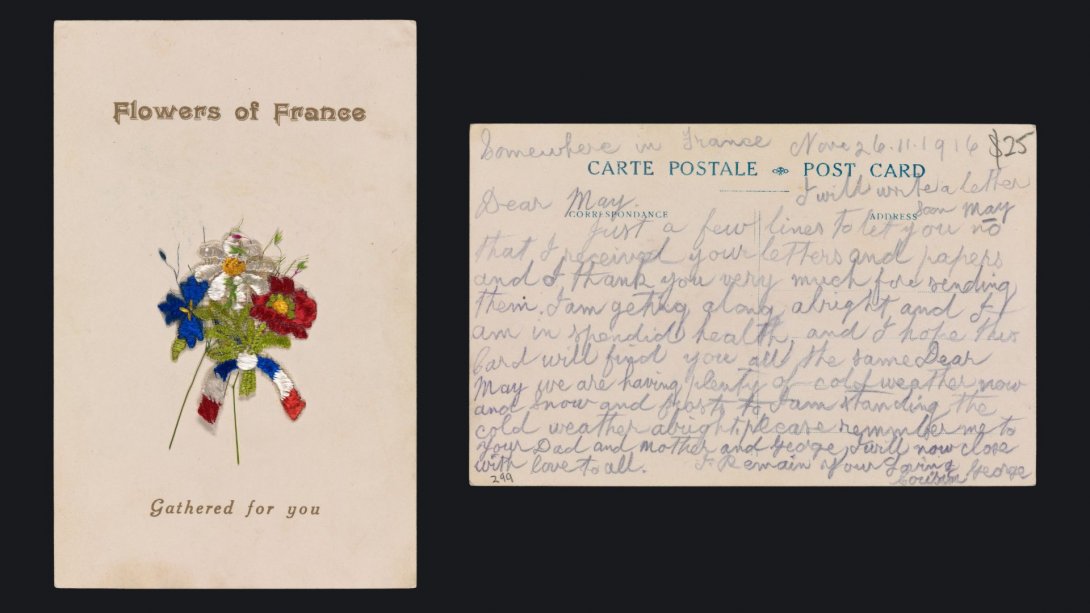 Flowers of France
Gathered for you
Somewhere in France Nov 26.11.1916 $25
CARTE POSTALE POST CARD
I will write a letter
Soon May
Dear May.
CORRESPONDANCE ADDRESS
Just a few lines to let you no
that I received your letters and papers
and I thank you very much for sending
them. I am geting along alright and I
am in spendid health, and I hope this
Card will find you all the same Dear
May we are having plenty of cold weather now
and Snow and frosts to I am standing the
cold weather alright. please remember me to
your Dad and Mother and George, I will now close
with love to all. I Remain Your Loving
Cousin George
299